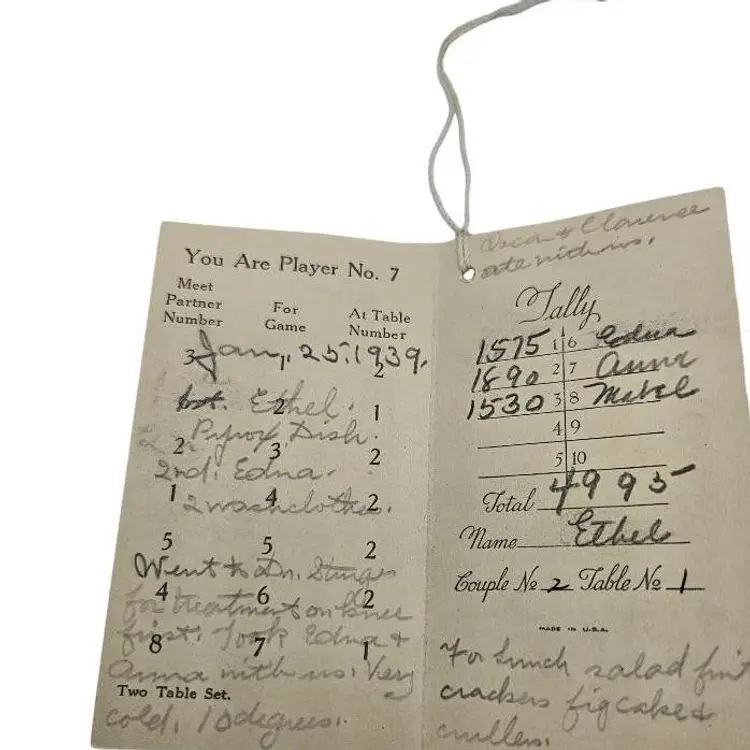 You Are Player No. 7
Meet
Partner
Number
For
Game
At Table
Number
3 1 2
Jan, 25, 1939.
2 1
1st. Ethel.
Pyrox Dish.
2 3 2
2nd. Edna.
1 4 2
2 washclothes.
5 5 2
Went to Dr. Sturges
4 6 2
for treatment on knee
first. Took Edna &
8 7 1
Anna with us. Very
Two Table Set.
cold. 10 degrees.
& Clarence
ate with us.
Tally
1575 1 6 Edna
1890 2 7 Anna
1530 3 8 Mabel
4 9
5 10
Total 4995
Name Ethel
Couple No 2 Table No 1
MADE IN U.S.A.
For lunch salad fruit
crackers fig cake &
crullers.